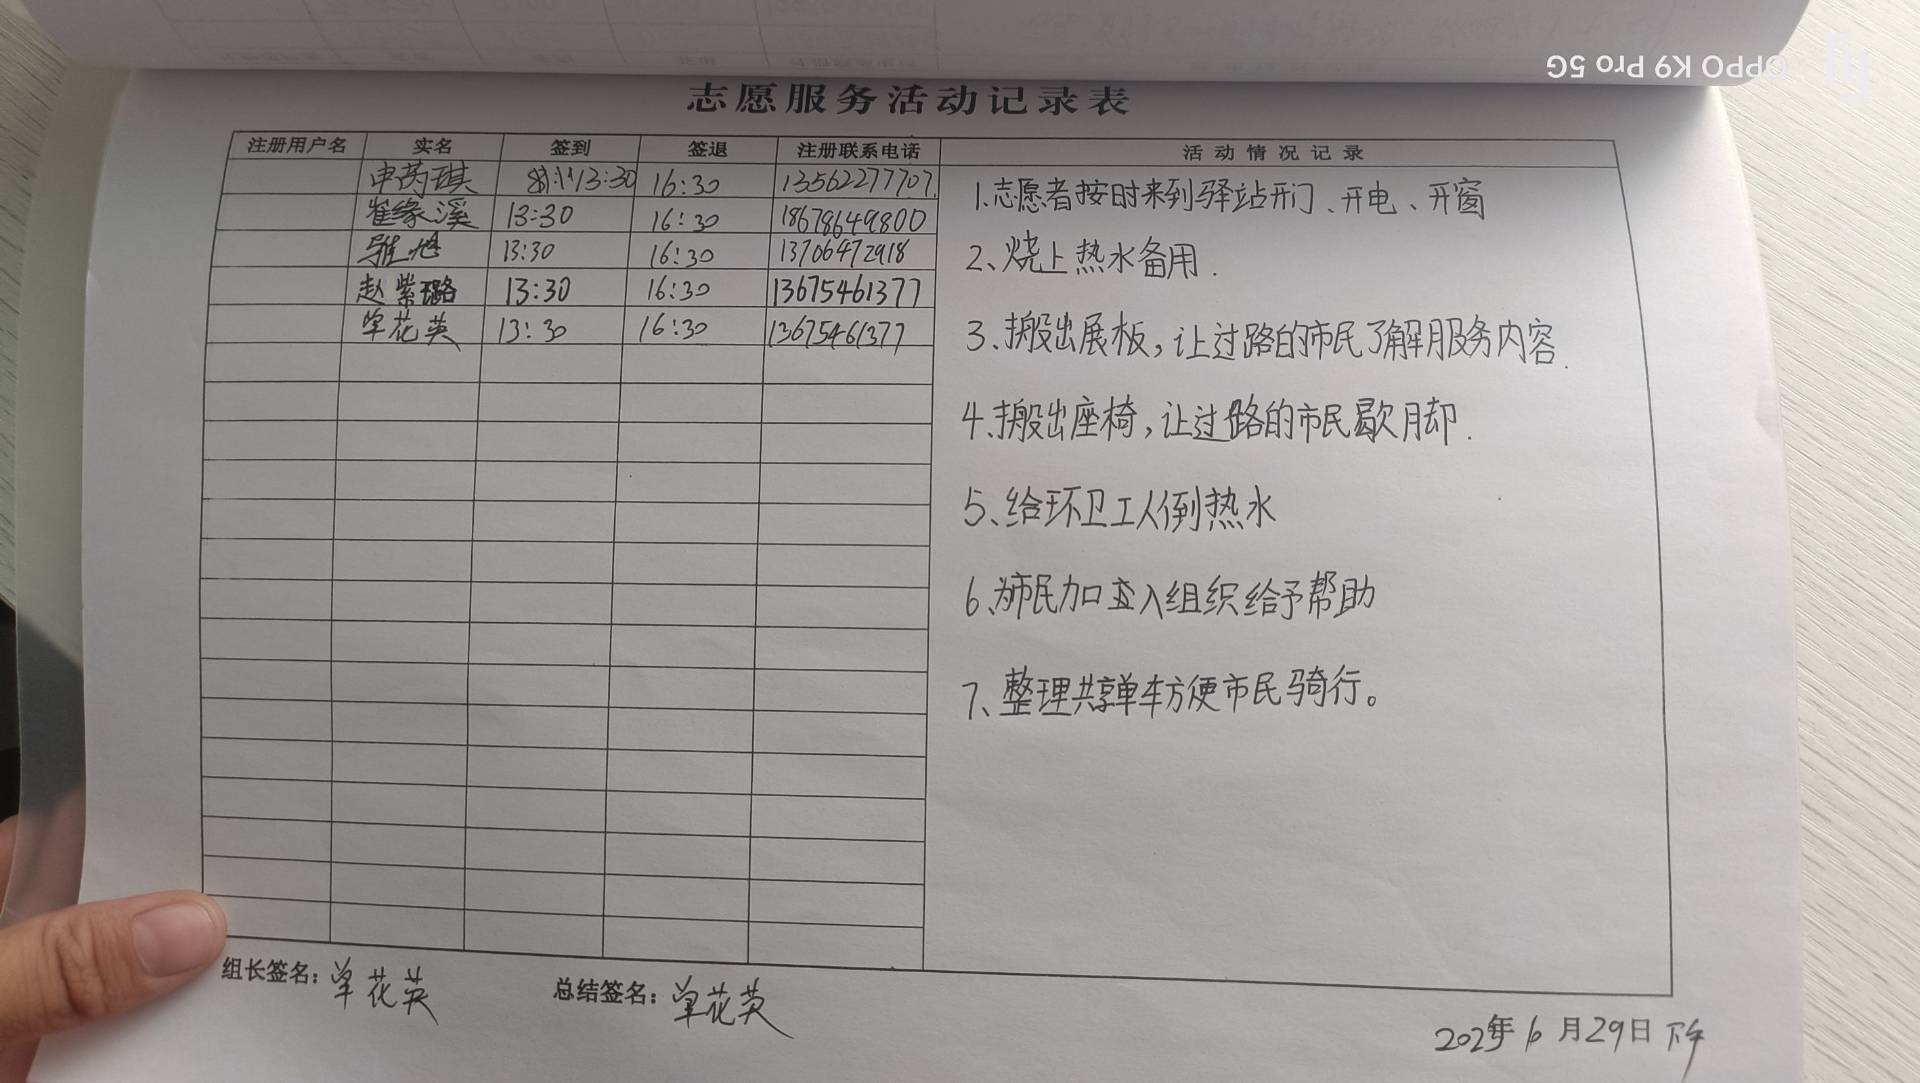 OPPO K9 Pro 5G
志愿服务活动记录表
注册用户名 实名 签到 签退 注册联系电话 活动情况记录
申芮琪 13:30 16:30 13562277707
崔缘溪 13:30 16:30 18678649800
13:30 16:30 13706472918
赵紫璐 13:30 16:30 13675461377
单花英 13:30 16:30 13675461377
1.志愿者按时来到驿站开门、开电、开窗
2、烧上热水备用.
3、搬出展板,让过路的市民了解服务内容.
4、搬出座椅,让过路的市民歇脚.
5、给环卫工人倒热水
6、为市民加入组织给予帮助
7、整理共享单车方便市民骑行。
组长签名:单花英 总结签名:单花英
年6月29日下午